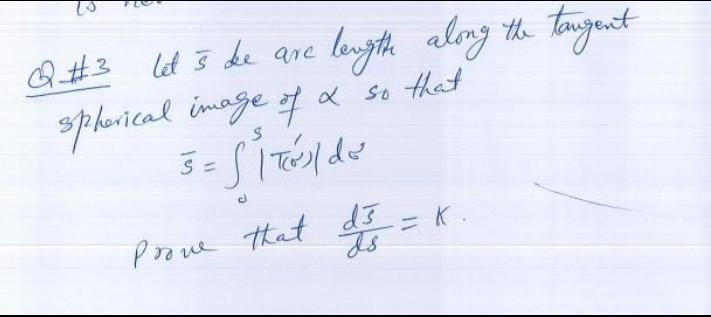 Q #3 let s̄ be arc length along the tangent
spherical image of α so that
s̄ = ∫₀ˢ |T'(σ)| dσ
Prove that ds̄/ds = K.